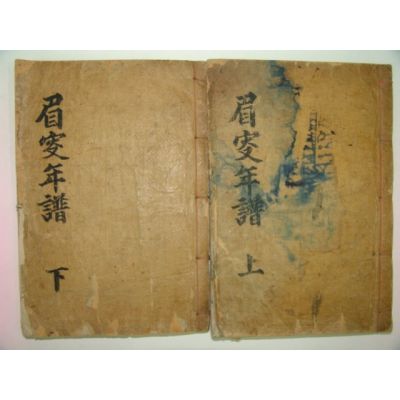 眉叟年譜
上
眉叟年譜
下